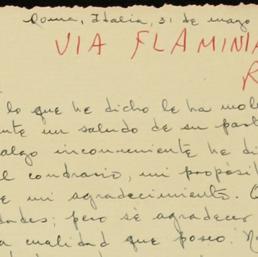 Roma, Italia, 31 de marzo
VIA FLAMINIA
R
lo que he dicho le ha mole
nte un saludo de su part
algo inconveniente he di
l contrario, mi propósit
e mi agradecimiento. C
dades; pero sé agradecer
a cualidad que poseo. No